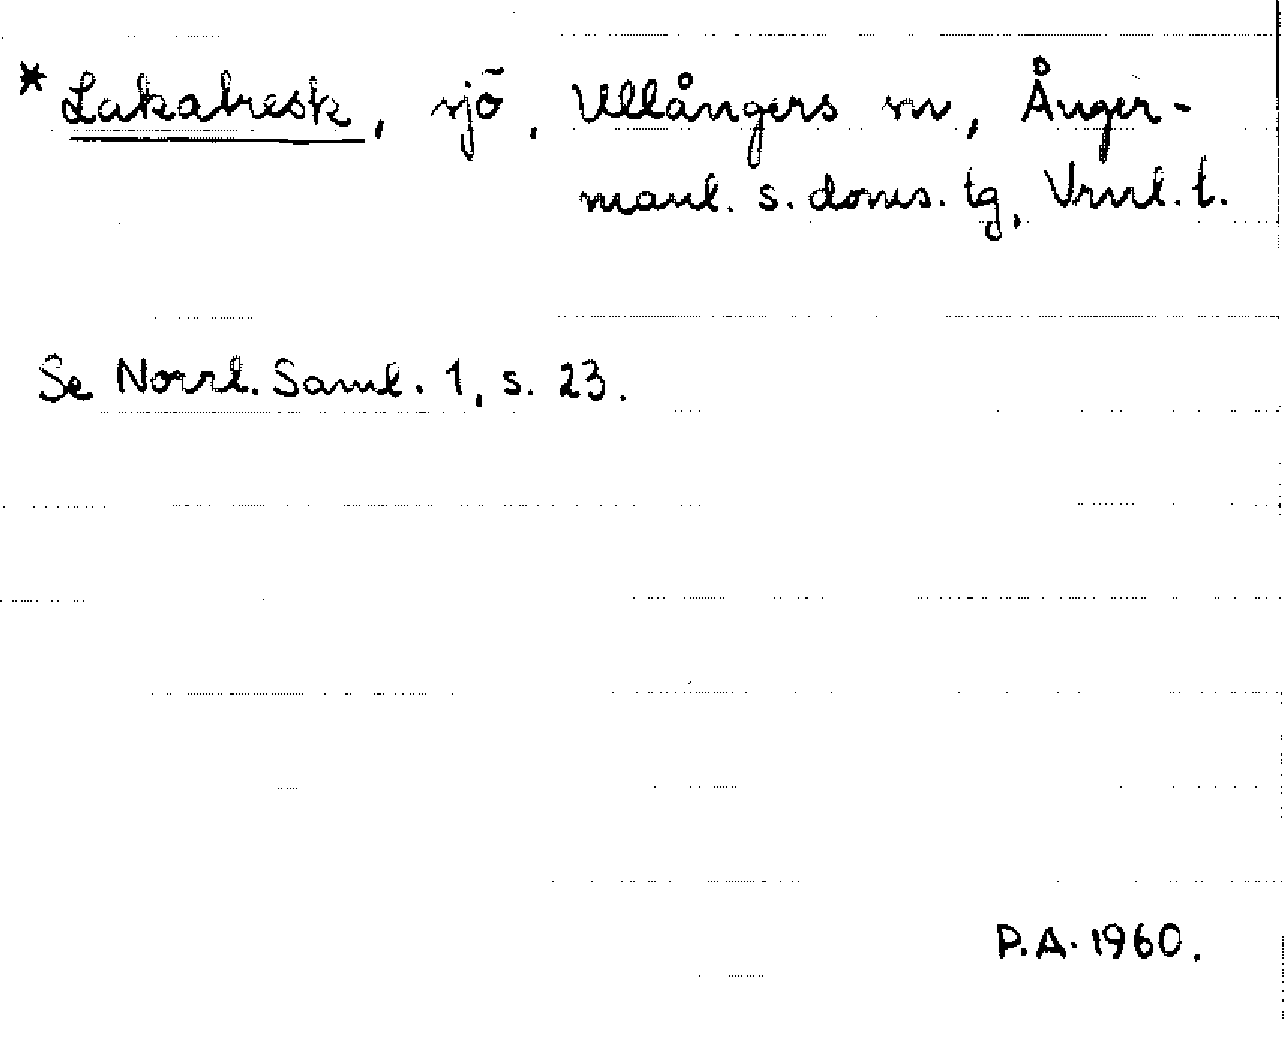 * Lakatresk, sjö, Ullångers sn, Ånger-
manl. s. doms. tg, Vrnl. t.
Se Norrl. Saml. 1, s. 23.
P.A. 1960.